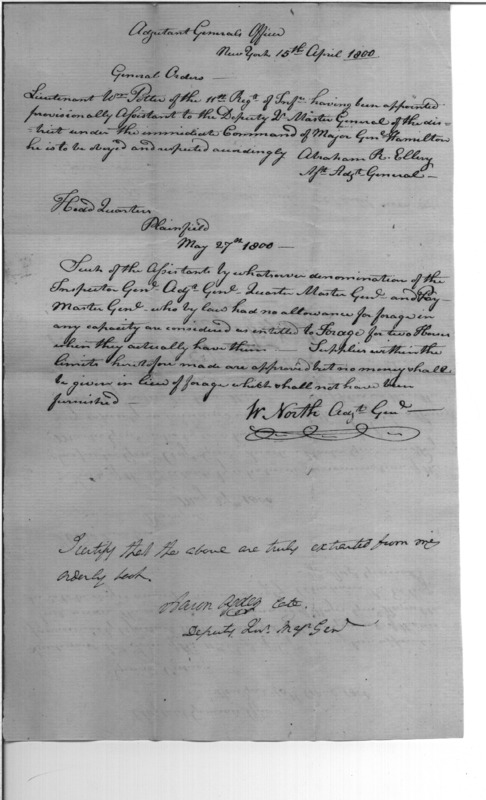 Adjutant Generals Office
New York 15th April 1800
General Orders —
Lieutenant Wm Potter of the 11th Regt of Infy having been appointed
provisionally Assistant to the Deputy Qr Master General of the dis-
trict under the immediate Command of Major Genl Hamilton
he is to be obeyed and respected accordingly Abraham R. Ellery
Asst Adjt General —
Head Quarters
Plainfield
May 27th 1800 —
Such of the Assistants by whatsoever denomination of the
Inspector Genl Adjt Genl Quarter Master Genl and Pay-
Master Genl who by law had no allowance for forage in
any capacity are considered as intitled to Forage for two Horses
when they actually have them — Supplies within the
limits heretofore made are approved but no money shall
be given in lieu of forage which shall not have been
furnished —
W. North Adjt Genl —
I certify that the above are truly extracted from my
orderly book.
Aaron Ogden late
Deputy Qur. Mastr Genl